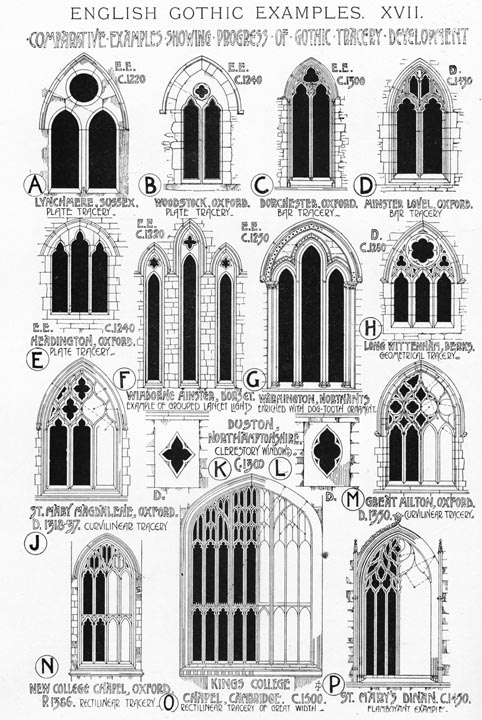 ENGLISH GOTHIC EXAMPLES. XVII.
COMPARATIVE·EXAMPLES·SHOWING·PROGRESS·OF·GOTHIC·TRACERY·DEVELOPMENT
E.E.
C.1220
A
LYNCHMERE, SUSSEX.
PLATE TRACERY
E.E.
C.1240
B
WOODSTOCK, OXFORD.
PLATE TRACERY
E.E.
C.1300
C
DORCHESTER, OXFORD.
BAR TRACERY
D.
C.1430
D
MINSTER LOVEL, OXFORD.
BAR TRACERY
E.E. C.1240
HEADINGTON, OXFORD.
E
PLATE TRACERY
E.E.
C.1220
F
WIMBORNE MINSTER, DORSET.
EXAMPLE OF GROUPED LANCET LIGHTS
E.E.
C.1250
G
WARMINGTON, NORTHANTS
ENRICHED WITH DOG-TOOTH ORNAMENT.
D.
C.1280
H
LONG WITTENHAM, BERKS.
GEOMETRICAL TRACERY
ST. MARY MAGDALENE, OXFORD.
D. 1318-37. CURVILINEAR TRACERY
J
DUSTON.
NORTHAMPTONSHIRE.
CLERESTORY WINDOWS
K C.1300 L
D. D.
M
GREAT MILTON, OXFORD.
D. 1350. CURVILINEAR TRACERY
N
NEW COLLEGE CHAPEL, OXFORD.
P. 1386. RECTILINEAR TRACERY
O
KINGS COLLEGE
CHAPEL, CAMBRIDGE. C.1500.
RECTILINEAR TRACERY OF GREAT WIDTH
P
ST. MARY'S DINAN. C.1450.
FLAMBOYANT EXAMPLE.